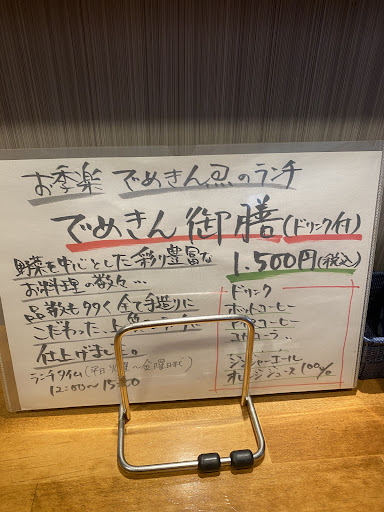 お季楽 でめきん忍のランチ
でめきん御膳(ドリンク付)
1.500円(税込)
野菜を中心とした彩り豊富な
お料理の数々…
品数も多く全て手造りに
こだわった
仕上げました。
ランチタイム
12:00〜15:00
ドリンク
ホットコーヒー
コーヒー
コーラ
ジンジャーエール
オレンジジュース100%